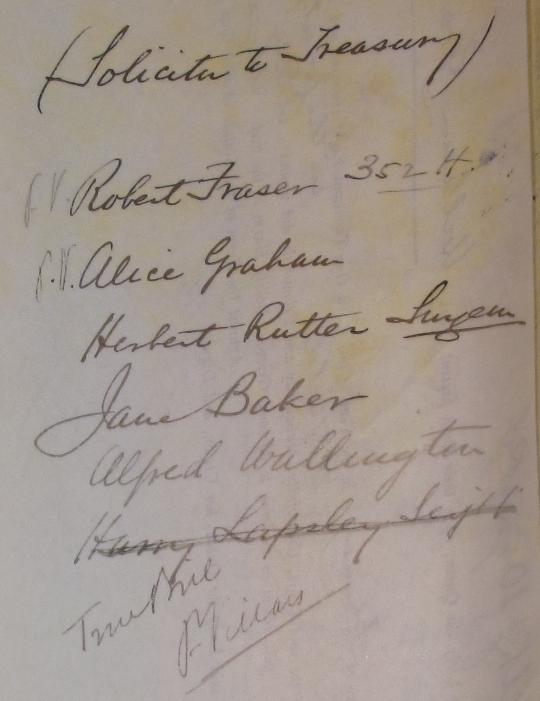 (Solicitor to Treasury)
P.V. Robert Fraser 352 H.
P.V. Alice Graham
Herbert Rutter Surgeon
Jane Baker
Alfred Wallington
Harry Lapsley Sergt
True Bill
P. Villars